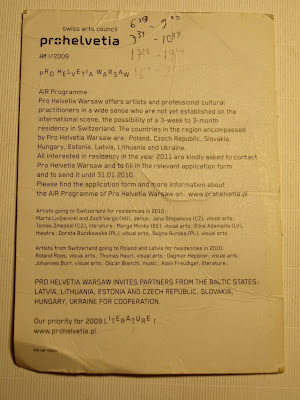 swiss arts council
prohelvetia
1/2009
PRO HELVETIA WARSAW
AiR Programme
Pro Helvetia Warsaw offers artists and professional cultural
practitioners in a wide sense who are not yet established on the
international scene, the possibility of a 3-week to 3-month
residency in Switzerland. The countries in the region encompassed
by Pro Helvetia Warsaw are: Poland, Czech Republic, Slovakia,
Hungary, Estonia, Latvia, Lithuania and Ukraine.
All interested in residency in the year 2011 are kindly asked to contact
Pro Helvetia Warsaw and to fill in the relevant application form
and to send it until 31.01.2010.
Please find the application form and more information about
the AiR Programme of Pro Helvetia Warsaw on: www.prohelvetia.pl
Artists going to Switzerland for residencies in 2010:
Marta Ladjánszki and Zsolt Varga (HU), dance; Jana Štěpánová (CZ), visual arts;
Tomáš Zmeškal (CZ), literature; Marge Monko (EE), visual arts; Elīna Adamaite (LV),
theatre; Dorota Buczkowska (PL), visual arts; Rogine Bursaa (PL), visual arts
Artists from Switzerland going to Poland and Latvia for residencies in 2010:
Roland Roos, visual arts; Thomas Hauri, visual arts; Dagmar Heppner, visual arts;
Johannes Burr, visual arts; Oscar Bianchi, music; Alain Freudiger, literature;
PRO HELVETIA WARSAW INVITES PARTNERS FROM THE BALTIC STATES:
LATVIA, LITHUANIA, ESTONIA AND CZECH REPUBLIC, SLOVAKIA,
HUNGARY, UKRAINE FOR COOPERATION.
Our priority for 2009 LITERATURE!
www.prohelvetia.pl